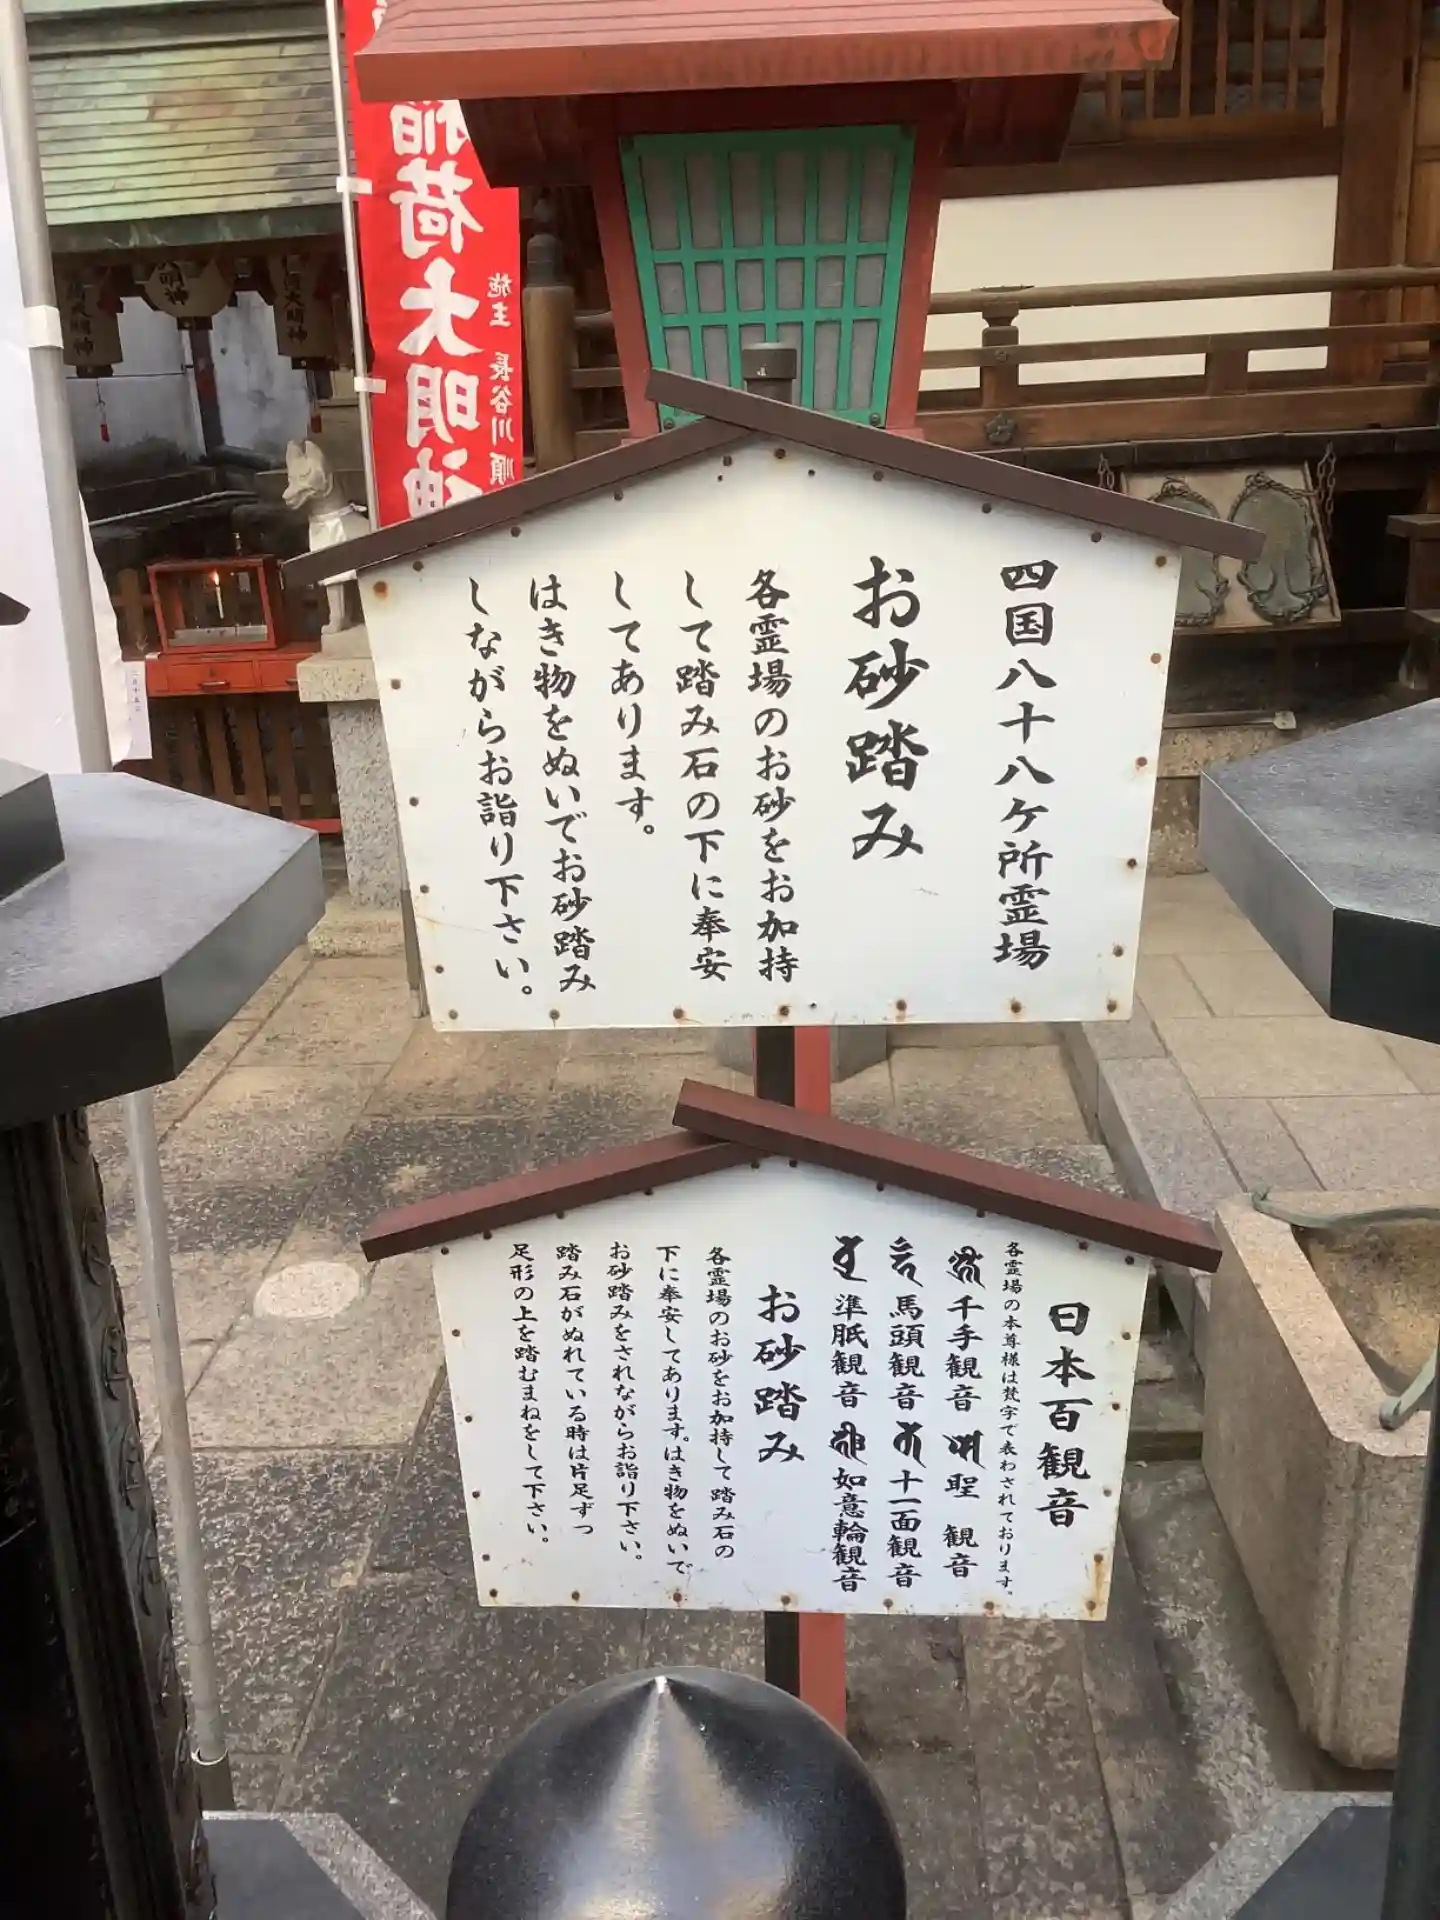 四国八十八ヶ所霊場
お砂踏み
各霊場のお砂をお加持
して踏み石の下に奉安
してあります。
はき物をぬいでお砂踏み
しながらお詣り下さい。
日本百観音
各霊場の本尊様は梵字で表わされております。
千手観音 聖 観音
馬頭観音 十一面観音
準胝観音 如意輪観音
お砂踏み
各霊場のお砂をお加持して踏み石の
下に奉安してあります。はき物をぬいで
お砂踏みをされながらお詣り下さい。
踏み石がぬれている時は片足ずつ
足形の上を踏むまねをして下さい。
稲荷大明神
施主 長谷川順
大明神
明神
大明神